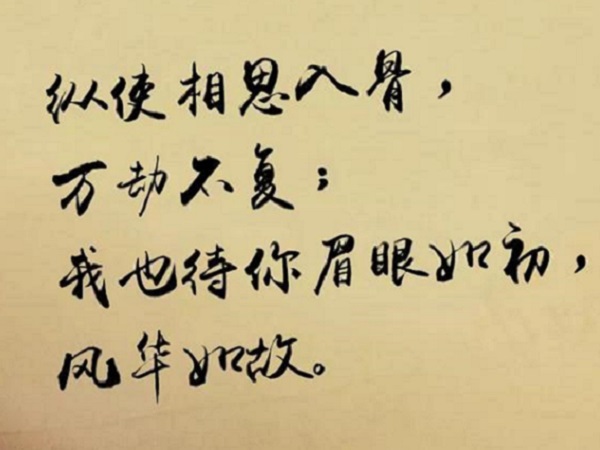 纵使相思入骨，
万劫不复；
我也待你眉眼如初，
风华如故。